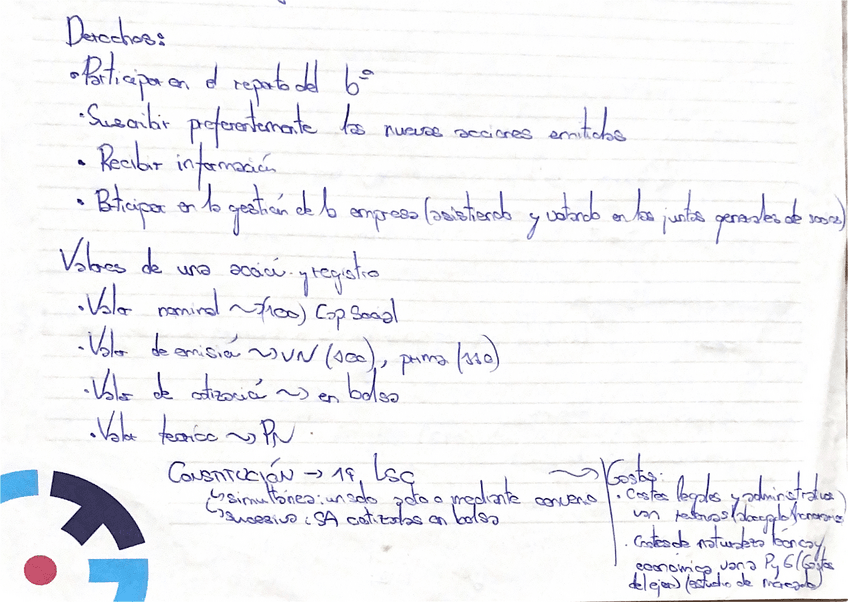 Derechos:
• Participar en el reparto del bº
• Suscribir preferentemente las nuevas acciones emitidas
• Recibir información
• Participar en la gestión de la empresa (asistiendo y votando en las juntas generales de socios)
Valores de una acción y registro
• Valor nominal ~> (100) Cap Social
• Valor de emisión ~> VN (100), prima (110)
• Valor de cotización ~> en bolsa
• Valor teórico ~> PN
CONSTITUCIÓN → 19 LSC
↳ simultánea: un solo acto o mediante convenio
↳ sucesiva: SA cotizadas en bolsa
~> Gastos:
• Costes legales y administrativos
van reservas (abogado/
• Costes de naturaleza técnica y
económica van a PyG (Gastos
del ejer) (estudio de mercado)